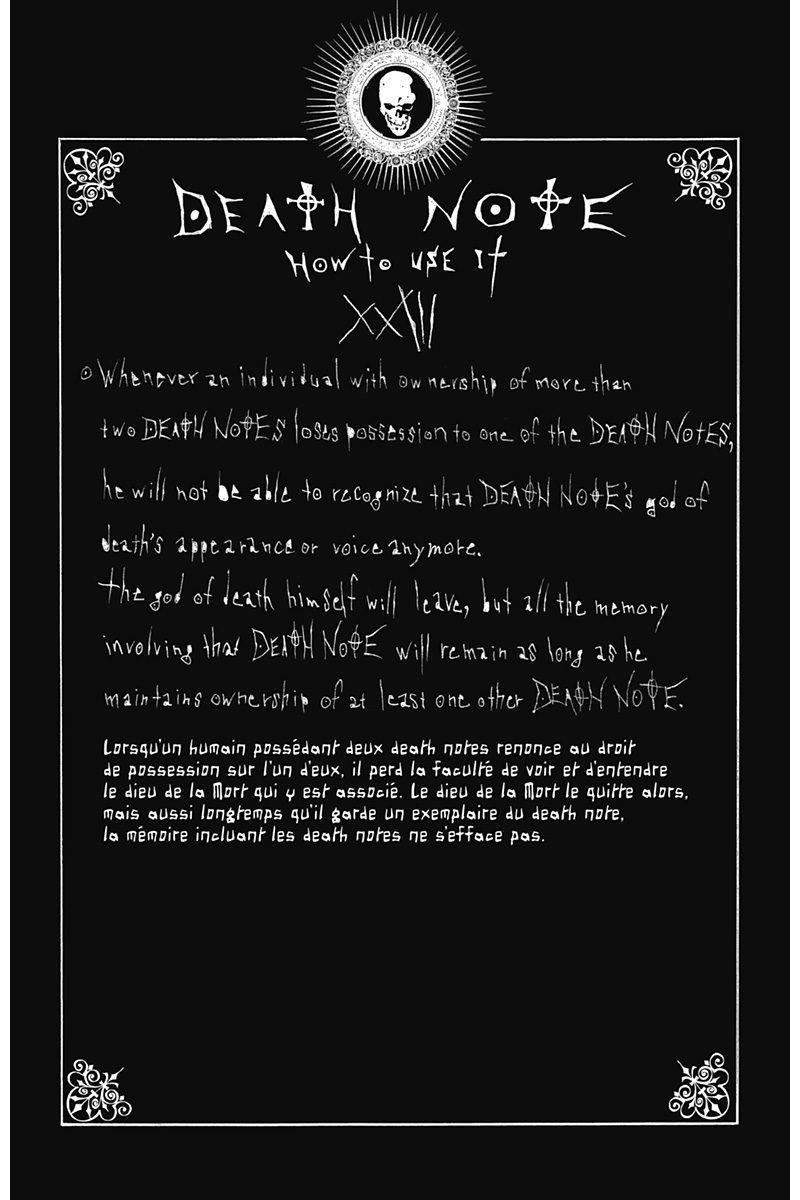 DEATH NOTE
HOW to USE It
XXIII
Whenever an individual with ownership of more than
two DEATH NOTES loses possession to one of the DEATH NOTES,
he will not be able to recognize that DEATH NOTE's god of
death's appearance or voice anymore.
The god of death himself will leave, but all the memory
involving that DEATH NOTE will remain as long as he
maintains ownership of at least one other DEATH NOTE.
Lorsqu'un humain possédant deux death notes renonce au droit
de possession sur l'un d'eux, il perd la faculté de voir et d'entendre
le dieu de la Mort qui y est associé. Le dieu de la Mort le quitte alors,
mais aussi longtemps qu'il garde un exemplaire du death note,
la mémoire incluant les death notes ne s'efface pas.